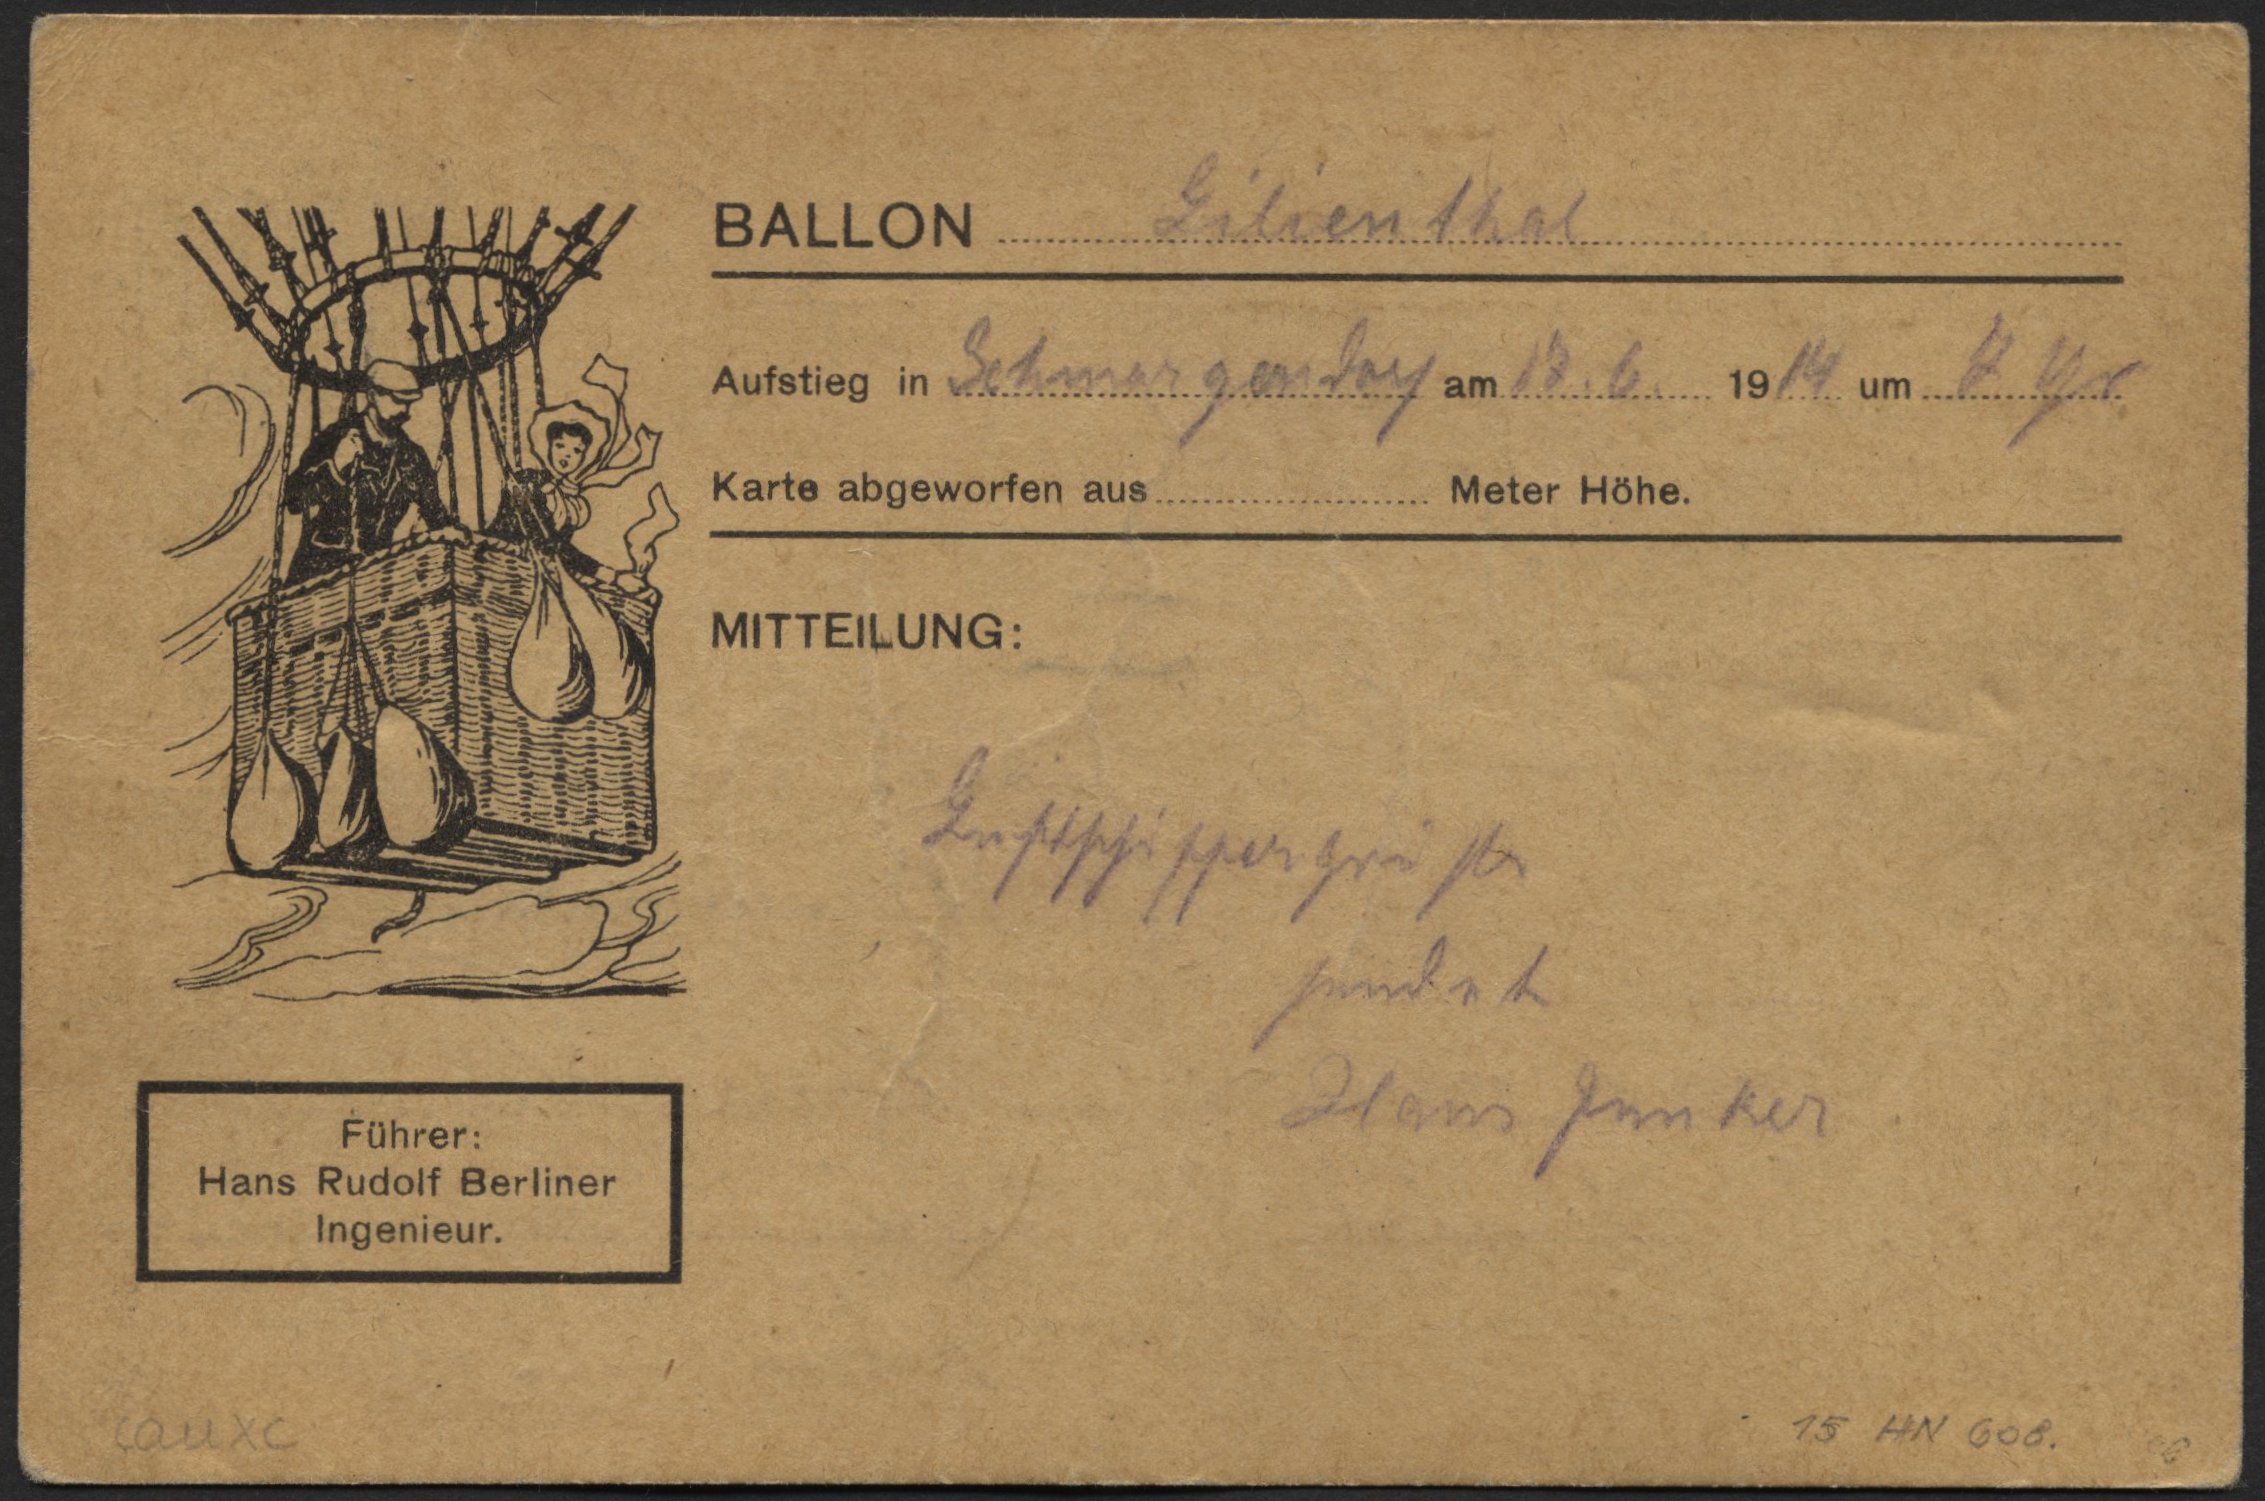 BALLON Lilienthal
Aufstieg in Schmargendorf am 18. 6. 1914 um 7 Uhr
Karte abgeworfen aus Meter Höhe.
MITTEILUNG:
Luftschiffergrüße
sendet
Hans Junker
Führer:
Hans Rudolf Berliner
Ingenieur.
15 HN 608.